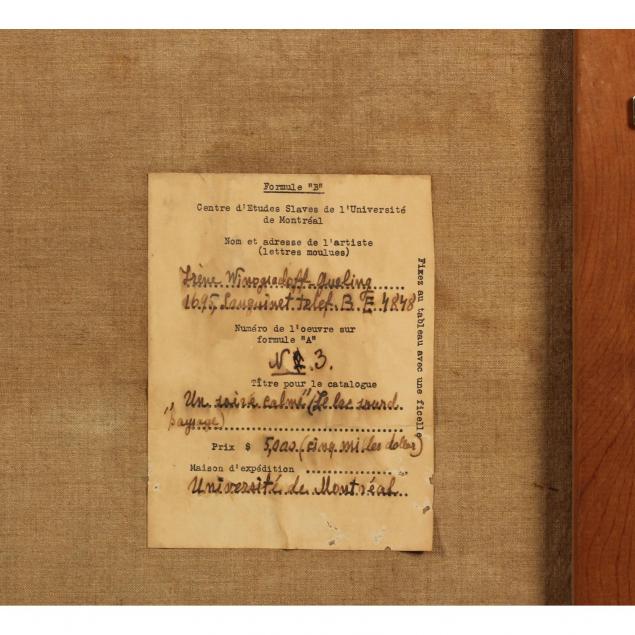 Formule "B"
Centre d'Etudes Slaves de l'Université
de Montréal
Nom et adresse de l'artiste
(lettres moulues)
Irène Winogradoff-Gueling
1695, Sanguinet telef. B E 4848
Numéro de l'oeuvre sur
formule "A"
3.
Tître pour le catalogue
"Un soire calme" (Le lac sourd
paysage)
Prix $ 5,000 (cinq milles dollars)
Maison d'expédition
Université de Montréal
Fixez au tableau avec une ficelle